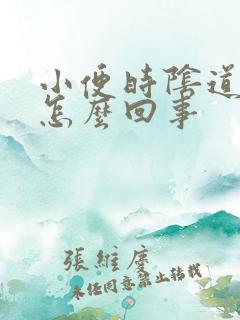 小便時陰道
怎麼回事
張維慶
未经同意禁止转载